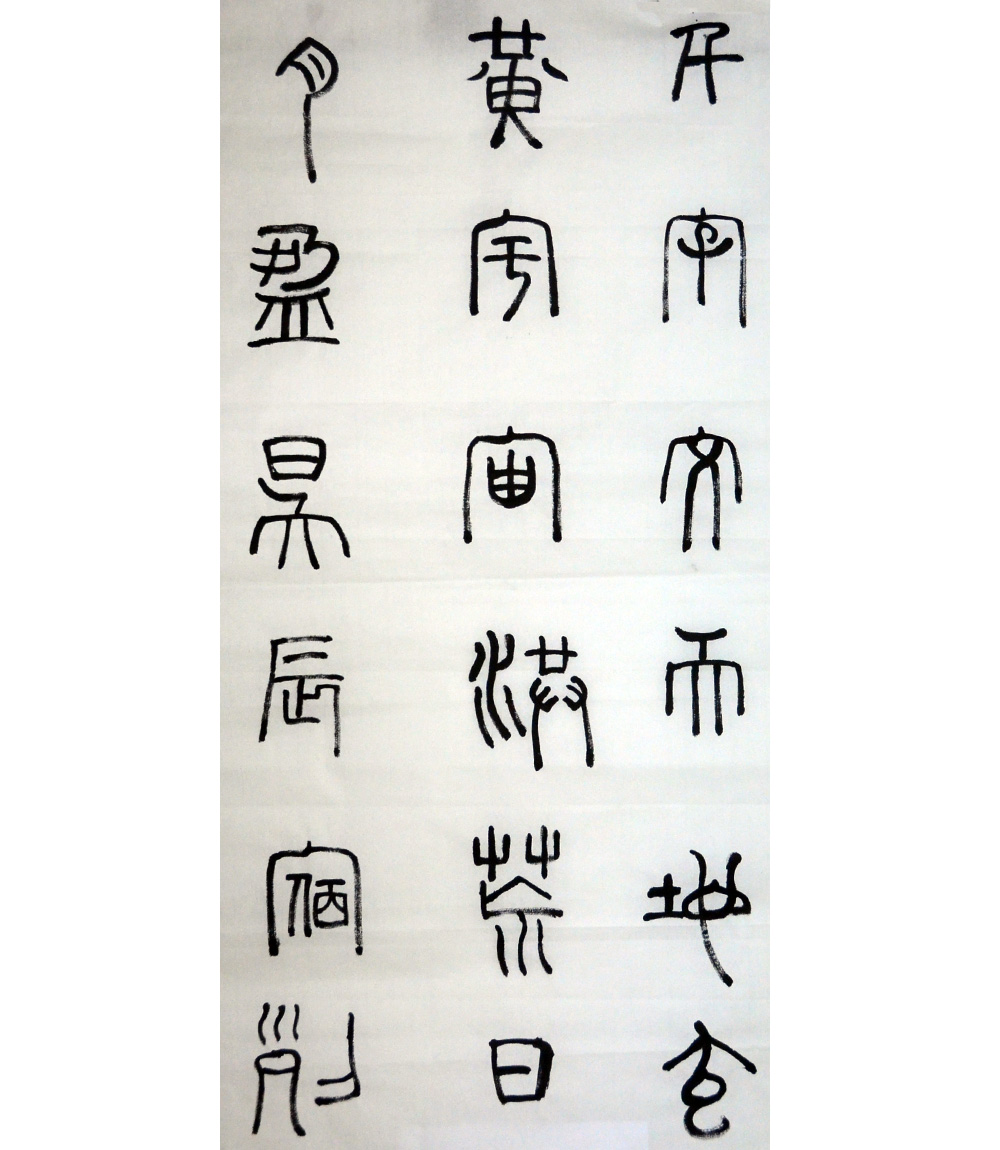 千字文天地玄
黃宇宙洪荒日
月盈昃辰宿列